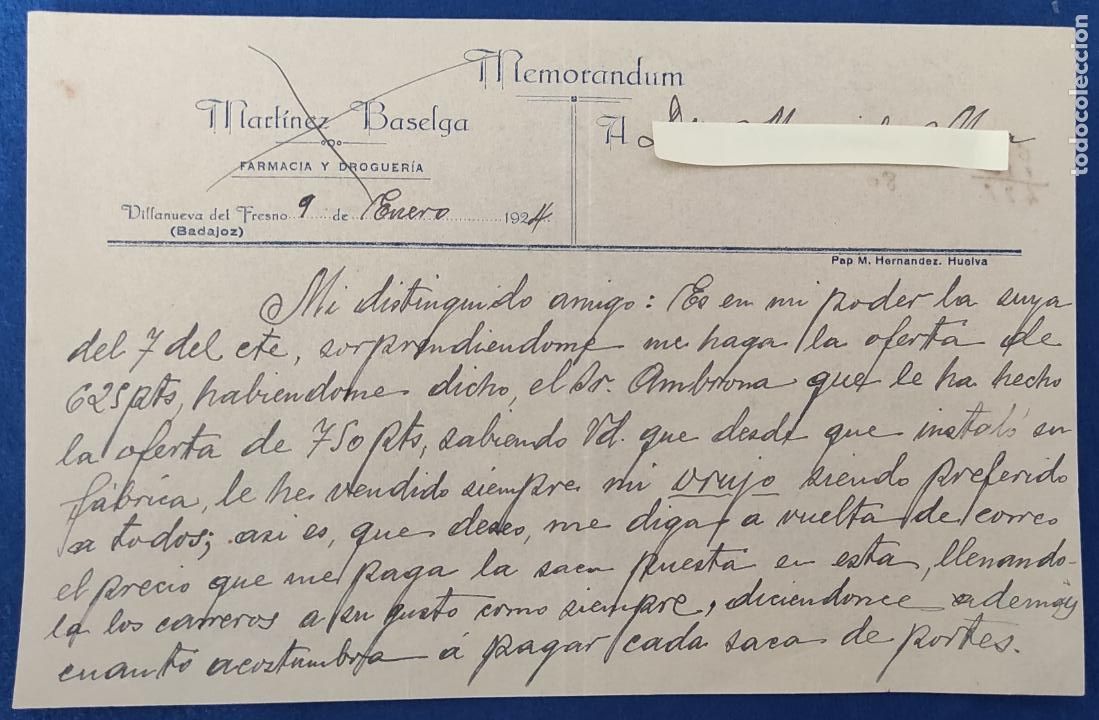 Memorandum
Martínez Baselga
FARMACIA Y DROGUERÍA
A
Villanueva del Fresno 9 de Enero 1924
(Badajoz)
Pap M. Hernandez. Huelva
Mi distinguido amigo: Es en mi poder la suya
del 7 del cte, sorprendiendome me haga la oferta de
625 pts, habiendome dicho, el Sr. Ambrona que le ha hecho
la oferta de 750 pts, sabiendo Vd. que desde que instaló su
fábrica, le he vendido siempre mi orujo siendo preferido
a todos; asi es, que deseo, me diga a vuelta de correo
el precio que me paga la saca puesta en esta, llenando-
la los carreros a su gusto como siempre, diciendome ademas
cuanto acostumbra á pagar cada saca de portes.
todocoleccion